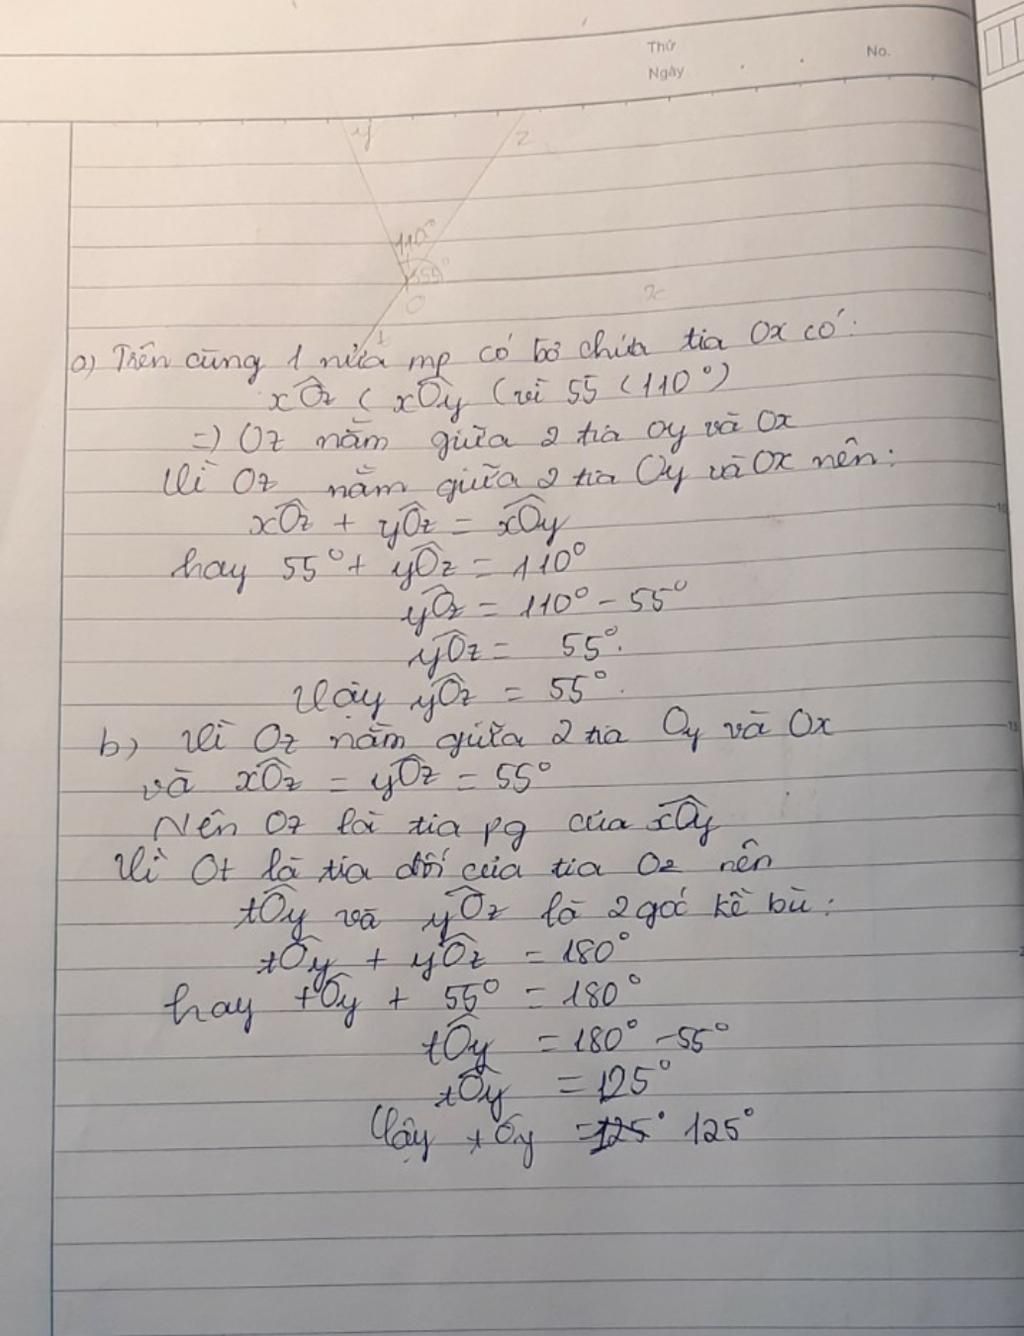 Thứ
Ngày
No.
y
z
110°
55°
O
x
t
a) Trên cùng 1 nửa mp có bờ chứa tia Ox có:
xÔz < xÔy (vì 55 < 110°)
=) Oz nằm giữa 2 tia Oy và Ox
Vì Oz nằm giữa 2 tia Oy và Ox nên:
xÔz + yÔz = xÔy
hay 55° + yÔz = 110°
yÔz = 110° - 55°
yÔz = 55°.
Vậy yÔz = 55°.
b) Vì Oz nằm giữa 2 tia Oy và Ox
và xÔz = yÔz = 55°
Nên Oz là tia pg của xÔy
Vì Ot là tia đối của tia Oz nên
tÔy và yÔz là 2 góc kề bù:
tÔy + yÔz = 180°
hay tÔy + 55° = 180°
tÔy = 180° - 55°
tÔy = 125°
Vậy tÔy = 125° 125°